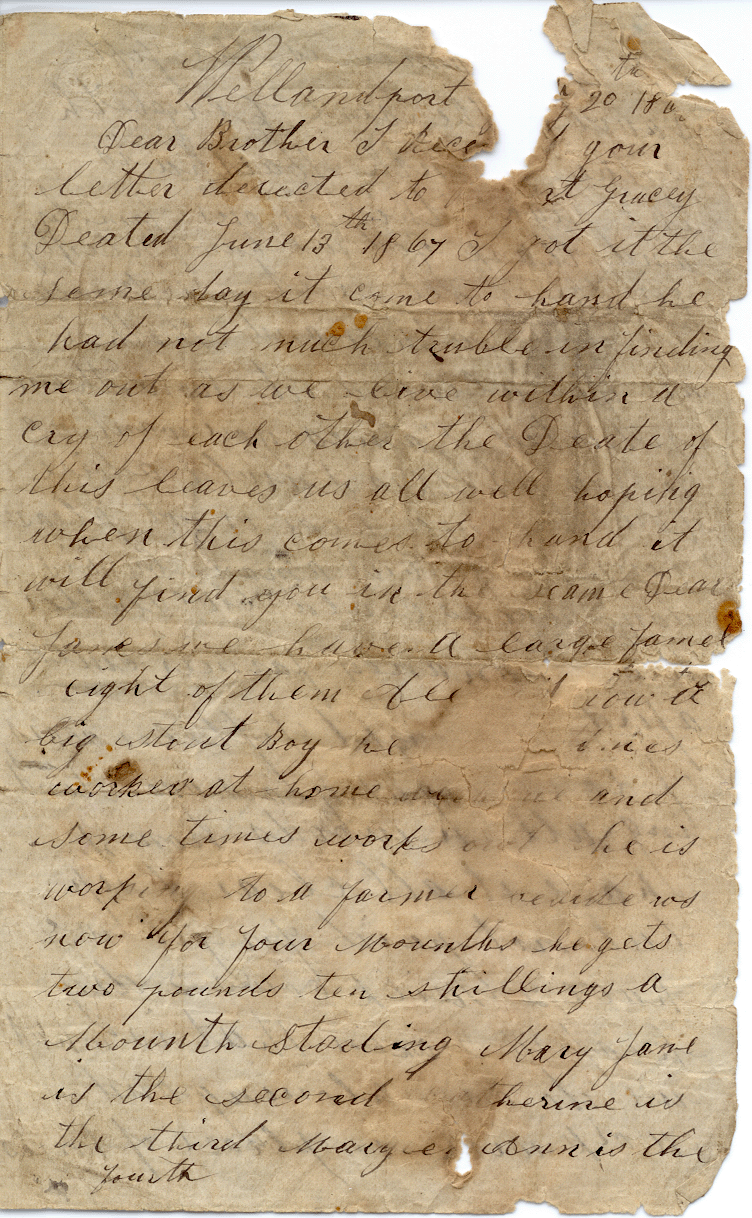 Wellandport 20th 186
Dear Brother I Rece your
letter derected to Gracey
Deated June 13th 1867 I got it the
same day it came to hand he
had not much truble in finding
me out as we live within a
cry of each other the Deate of
this leaves us all well hoping
when this comes to hand it
will find you in the same Dear
James we have a large famel
eight of them now a
big stout Boy he
workes at home and
some times works out he is
working to a farmer beside us
now for four Mounths he gets
two pounds ten shillings a
Mounth Starling Mary Jane
is the second therine is
the third Mary Ann is the
fourth